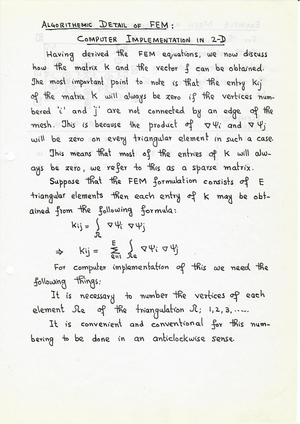 ALGORITHEMIC DETAIL OF FEM:
COMPUTER IMPLEMENTATION IN 2-D
Having derived the FEM equations, we now discuss
how the matrix K and the vector f can be obtained.
The most important point to note is that the entry Kij
of the matrix K will always be zero if the vertices num-
bered 'i' and 'j' are not connected by an edge of the
mesh. This is because the product of ∇Ψi and ∇Ψj
will be zero on every triangular element in such a case.
This means that most of the entries of K will alw-
ays be zero, we refer to this as a sparse matrix.
Suppose that the FEM formulation consists of E
triangular elements then each entry of K may be obt-
ained from the following formula:
Kij = ∫Ω ∇Ψi ∇Ψj
⇒ Kij = E∑e=1 ∫Ωe ∇Ψi ∇Ψj
For computer implementation of this we need the
following things;
It is necessary to number the vertices of each
element Ωe of the triangulation Ω; 1,2,3,.....
It is convenient and conventional for this num-
bering to be done in an anticlockwise sense.